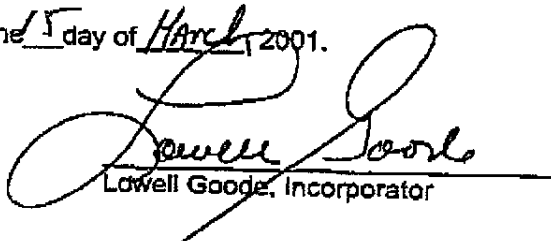 he 15 day of March, 2001.
Lowell Goode
Lowell Goode, Incorporator